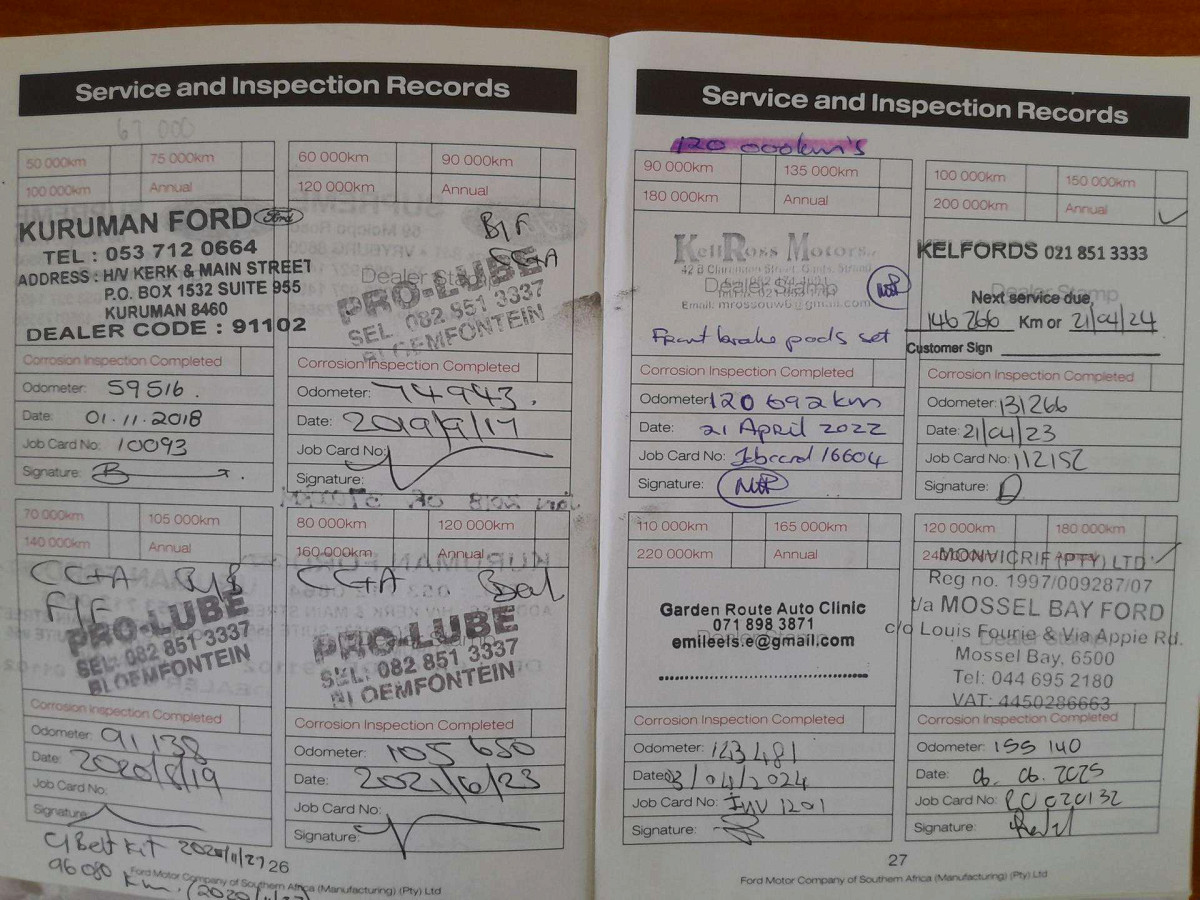 Service and Inspection Records
67 000
50 000km 75 000km
100 000km Annual
KURUMAN FORD Ford
TEL : 053 712 0664
ADDRESS : H/V KERK & MAIN STREET
P.O. BOX 1532 SUITE 955
KURUMAN 8460
DEALER CODE : 91102
Corrosion Inspection Completed
Odometer: 59516.
Date: 01.11.2018
Job Card No: 10093
Signature:
60 000km 90 000km
120 000km Annual
B/F
Dealer Stamp
PRO-LUBE
SEL: 082 851 3337
BLOEMFONTEIN
Corrosion Inspection Completed
Odometer: 74943.
Date: 2019/9/17
Job Card No:
Signature:
70 000km 105 000km
140 000km Annual
CC+A
F/F
PRO-LUBE
SEL: 082 851 3337
BLOEMFONTEIN
Corrosion Inspection Completed
Odometer: 91138
Date: 2020/8/19
Job Card No:
Signature:
80 000km 120 000km
160 000km Annual
CC+A Bal
PRO-LUBE
SEL: 082 851 3337
BLOEMFONTEIN
Corrosion Inspection Completed
Odometer: 105 650
Date: 2021/6/23
Job Card No:
Signature:
C/Belt Kit 2020/11/27
96080 Km. (2020/11/27)
26
Ford Motor Company of Southern Africa (Manufacturing) (Pty) Ltd
Service and Inspection Records
120 000km's
90 000km 135 000km
180 000km Annual
KellRoss Motors
Dealer Stamp
Email: mrossouw6@gmail.com
Front brake pads set
Corrosion Inspection Completed
Odometer: 120 692 km
Date: 21 April 2022
Job Card No: Jobcard 16604
Signature:
100 000km 150 000km
200 000km Annual
KELFORDS 021 851 3333
Dealer Stamp
Next service due,
146 266 Km or 21/04/24
Customer Sign
Corrosion Inspection Completed
Odometer: 131266
Date: 21/04/23
Job Card No: 112152
Signature:
110 000km 165 000km
220 000km Annual
Garden Route Auto Clinic
071 898 3871
emileels.e@gmail.com
Dealer Stamp
Corrosion Inspection Completed
Odometer: 123481
Date: 03/04/2024
Job Card No: INV 1201
Signature:
120 000km 180 000km
240 000km Annual
MONVICRIF (PTY) LTD
Reg no. 1997/009287/07
t/a MOSSEL BAY FORD
c/o Louis Fourie & Via Appie Rd.
Dealer Stamp
Mossel Bay, 6500
Tel: 044 695 2180
VAT: 4450286663
Corrosion Inspection Completed
Odometer: 155 140
Date: 06. 06. 2025
Job Card No: RO020132
Signature:
27
Ford Motor Company of Southern Africa (Manufacturing) (Pty) Ltd